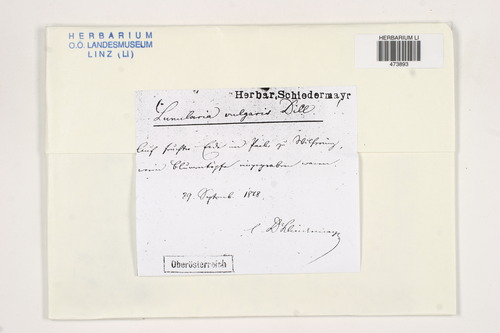 HERBARIUM
O.Ö. LANDESMUSEUM
LINZ (LI)
HERBARIUM LI
473893
Herbar. Schiedermayr
Lunularia vulgaris Dill
Auf feuchter Erde im Parke zu
wo Blumentöpfe eingegraben waren.
29. Septemb. 1868
Oberösterreich